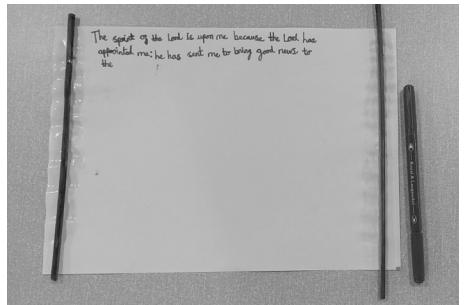 The spirit of the Lord is upon me because the Lord has
appointed me: he has sent me to bring good news to
the